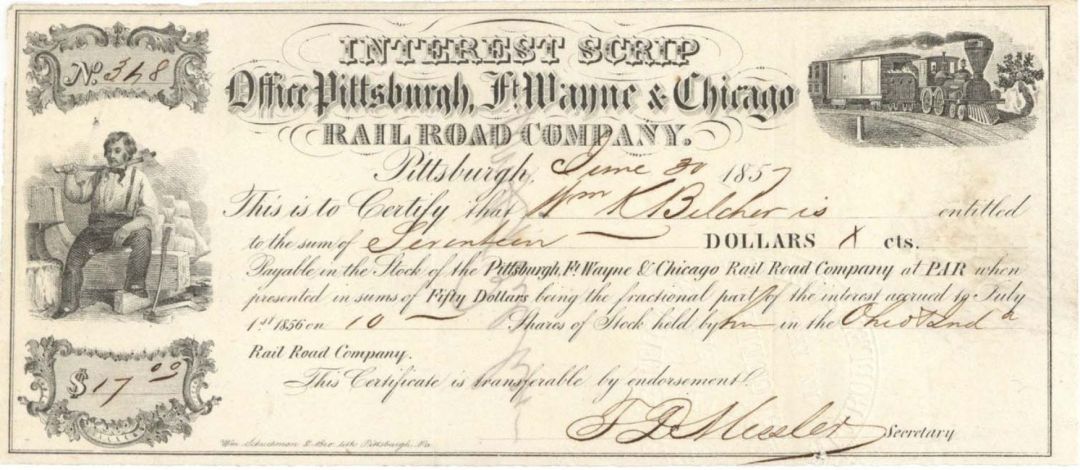 No. 348
INTEREST SCRIP
Office Pittsburgh, Ft. Wayne & Chicago
RAIL ROAD COMPANY.
Pittsburgh, June 30 1857
This is to Certify that Wm K Belcher is entitled
to the sum of Seventeen DOLLARS X cts.
Payable in the Stock of the Pittsburgh, Ft Wayne & Chicago Rail Road Company at PAR when
presented in sums of Fifty Dollars being the fractional part of the interest accrued to July
1st 1856 on 10 Shares of Stock held by him in the Ohio & Inda
Rail Road Company.
This Certificate is transferable by endorsement.
$17 00
T D Messler Secretary
Wm Schuchman & Bro. Lith Pittsburgh, Pa.